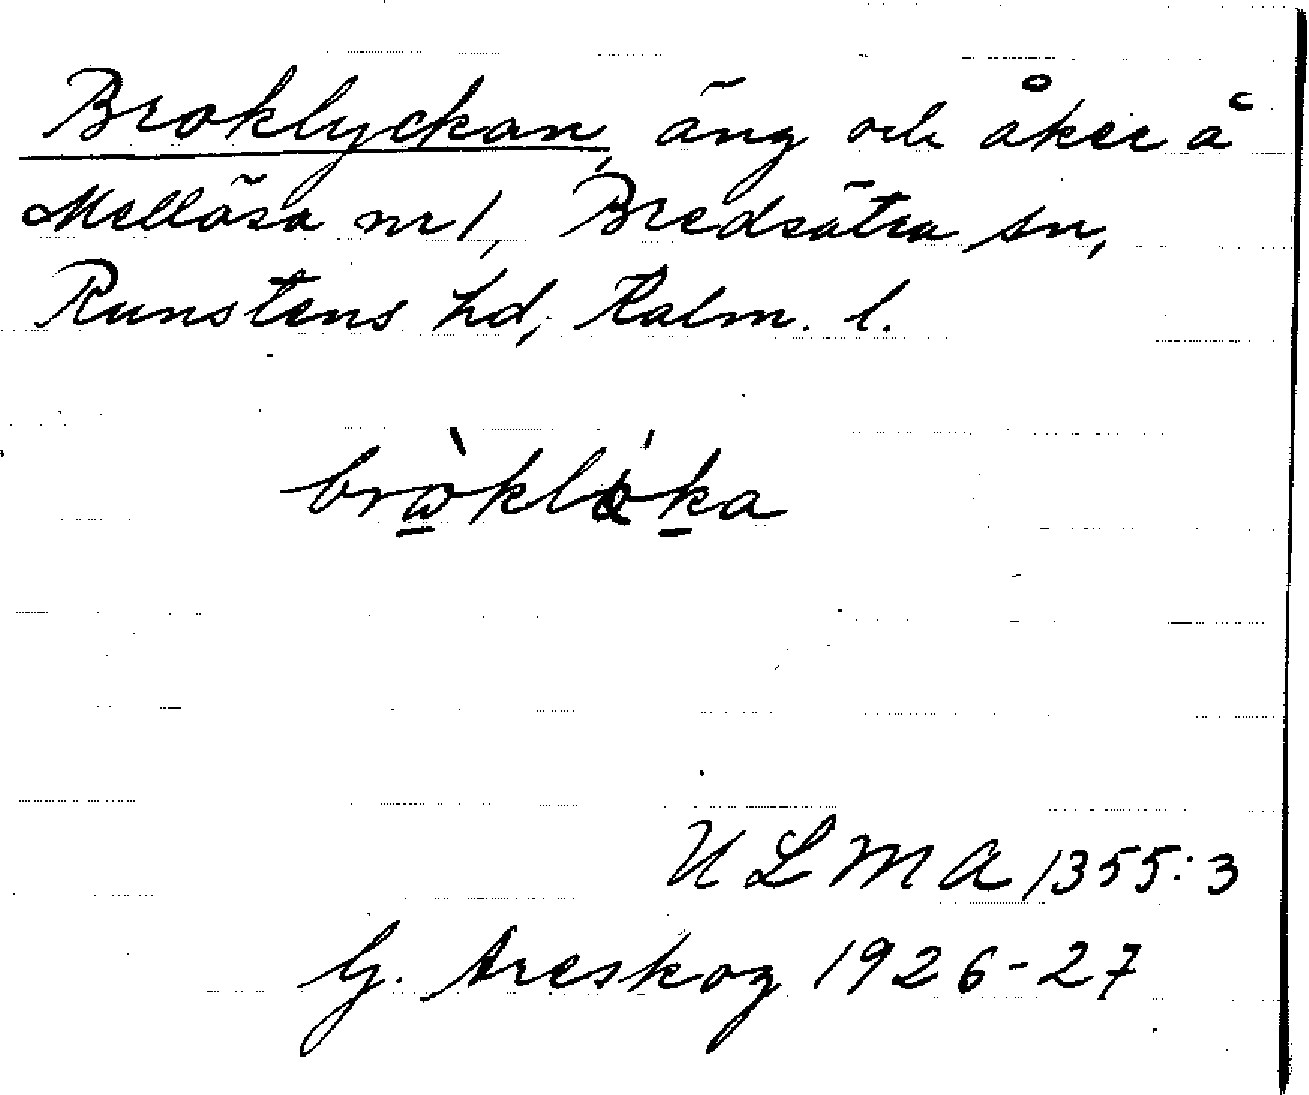 Broklyckan, äng och åker å
Mellösa nr 1, Bredsätra sn,
Runstens hd, Kalm. l.
ULMA 1355:3
G. Areskog 1926-27